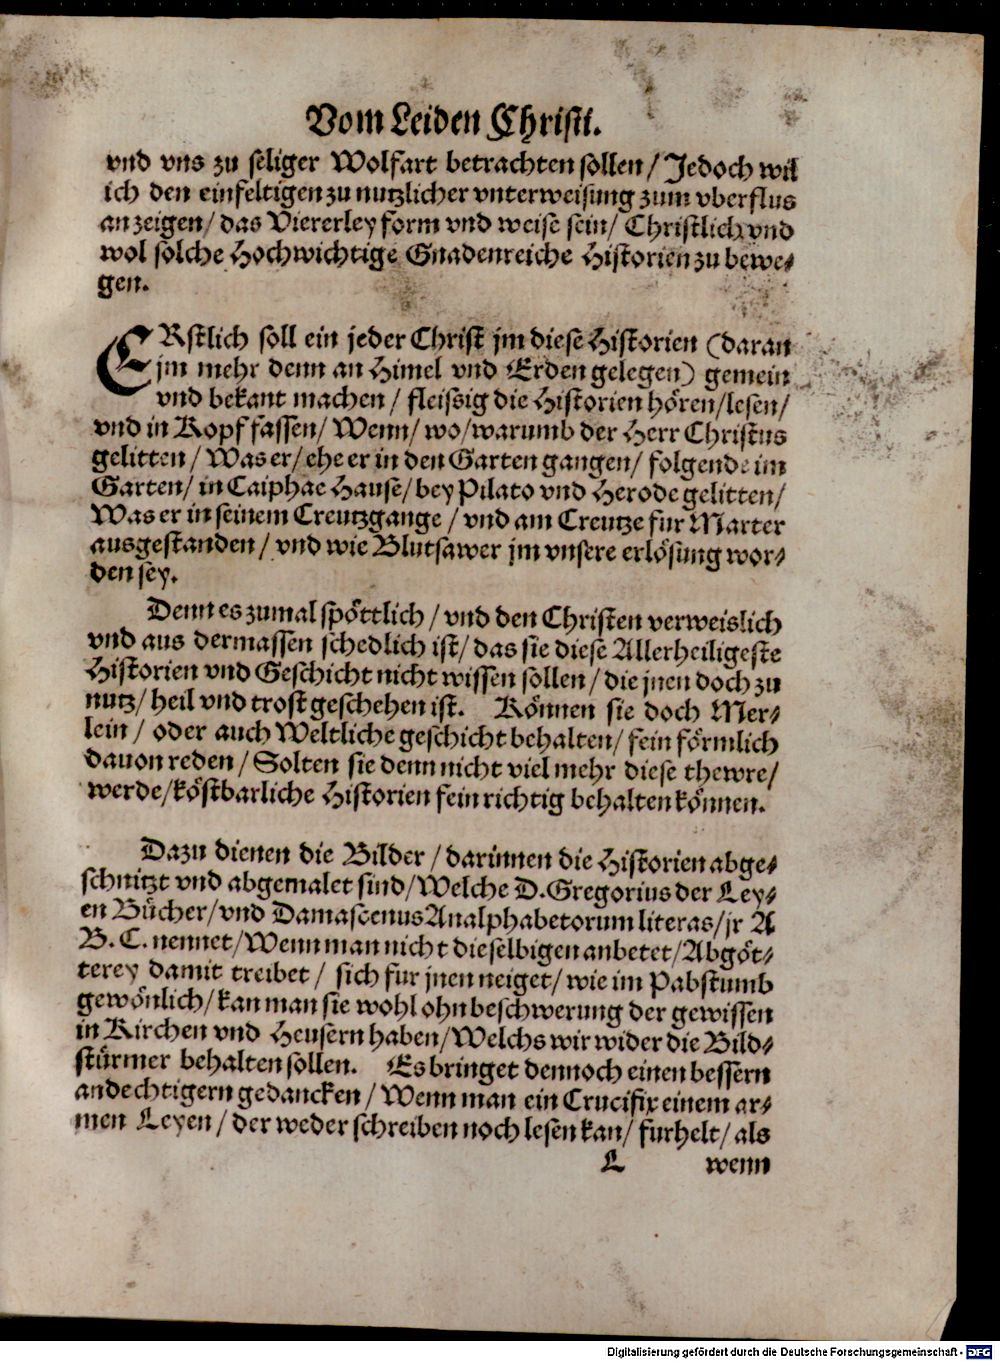 Vom Leiden Christi.
vnd vns zu seliger Wolfart betrachten sollen / Jedoch wil
ich den einfeltigen zu nutzlicher vnterweisung zum vberflus
anzeigen / das Viererley form vnd weise sein / Christlich vnd
wol solche Hochwichtige Gnadenreiche Historien zu bewe-
gen.
ERstlich soll ein jeder Christ jm diese Historien (daran
jm mehr denn an Himel vnd Erden gelegen) gemein
vnd bekant machen / fleissig die Historien hören / lesen /
vnd in Kopf fassen / Wenn / wo / warumb der Herr Christus
gelitten / Was er / ehe er in den Garten gangen / folgende im
Garten / in Caiphae Hause / bey Pilato vnd Herode gelitten /
Was er in seinem Creutzgange / vnd am Creutze fur Marter
ausgestanden / vnd wie Blutsawer jm vnsere erlösung wor-
den sey.
Denn es zumal spöttlich / vnd den Christen verweislich
vnd aus dermassen schedlich ist / das sie diese Allerheiligeste
Historien vnd Geschicht nicht wissen sollen / die jnen doch zu
nutz / heil vnd trost geschehen ist. Können sie doch Mer-
lein / oder auch Weltliche geschicht behalten / fein förmlich
dauon reden / Solten sie denn nicht viel mehr diese thewre /
werde / köstbarliche Historien fein richtig behalten können.
Dazu dienen die Bilder / darinnen die Historien abge-
schnitzt vnd abgemalet sind / Welche D. Gregorius der Ley-
en Bücher / vnd Damascenus Analphabetorum literas / jr A
B. C. nennet / Wenn man nicht dieselbigen anbetet / Abgöt-
terey damit treibet / sich fur jnen neiget / wie im Pabstumb
gewönlich / kan man sie wohl ohn beschwerung der gewissen
in Kirchen vnd Heusern haben / Welchs wir wider die Bild-
stürmer behalten sollen. Es bringet dennoch einen bessern
andechtigern gedancken / Wenn man ein Crucifix einem ar-
men Leyen / der weder schreiben noch lesen kan / furhelt / als
L wenn
Digitalisierung gefördert durch die Deutsche Forschungsgemeinschaft - DFG